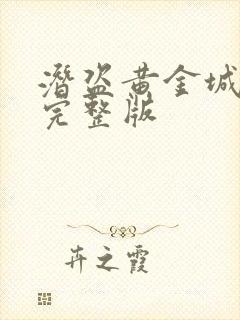 潜盗黄金城
完整版
卉之霞